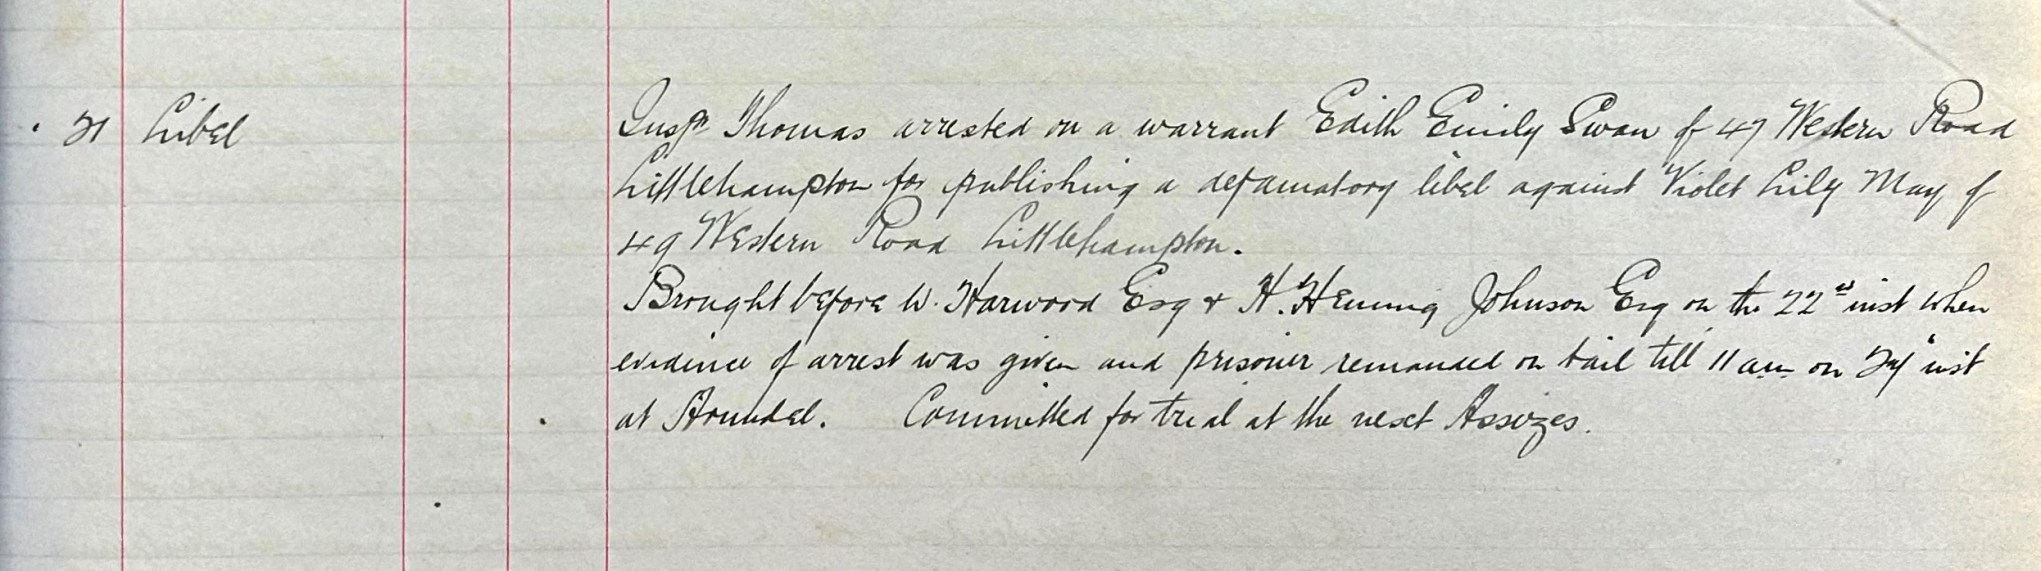 21 Libel Inspr Thomas arrested on a warrant Edith Emily Swan of 47 Western Road
Littlehampton for publishing a defamatory libel against Violet Lily May of
49 Western Road Littlehampton.
Brought before W. Harwood Esq & H. Heming Johnson Esq on the 22nd inst when
evidence of arrest was given and prisoner remanded on bail till 11 am on inst
at Arundel. Committed for trial at the next Assizes.